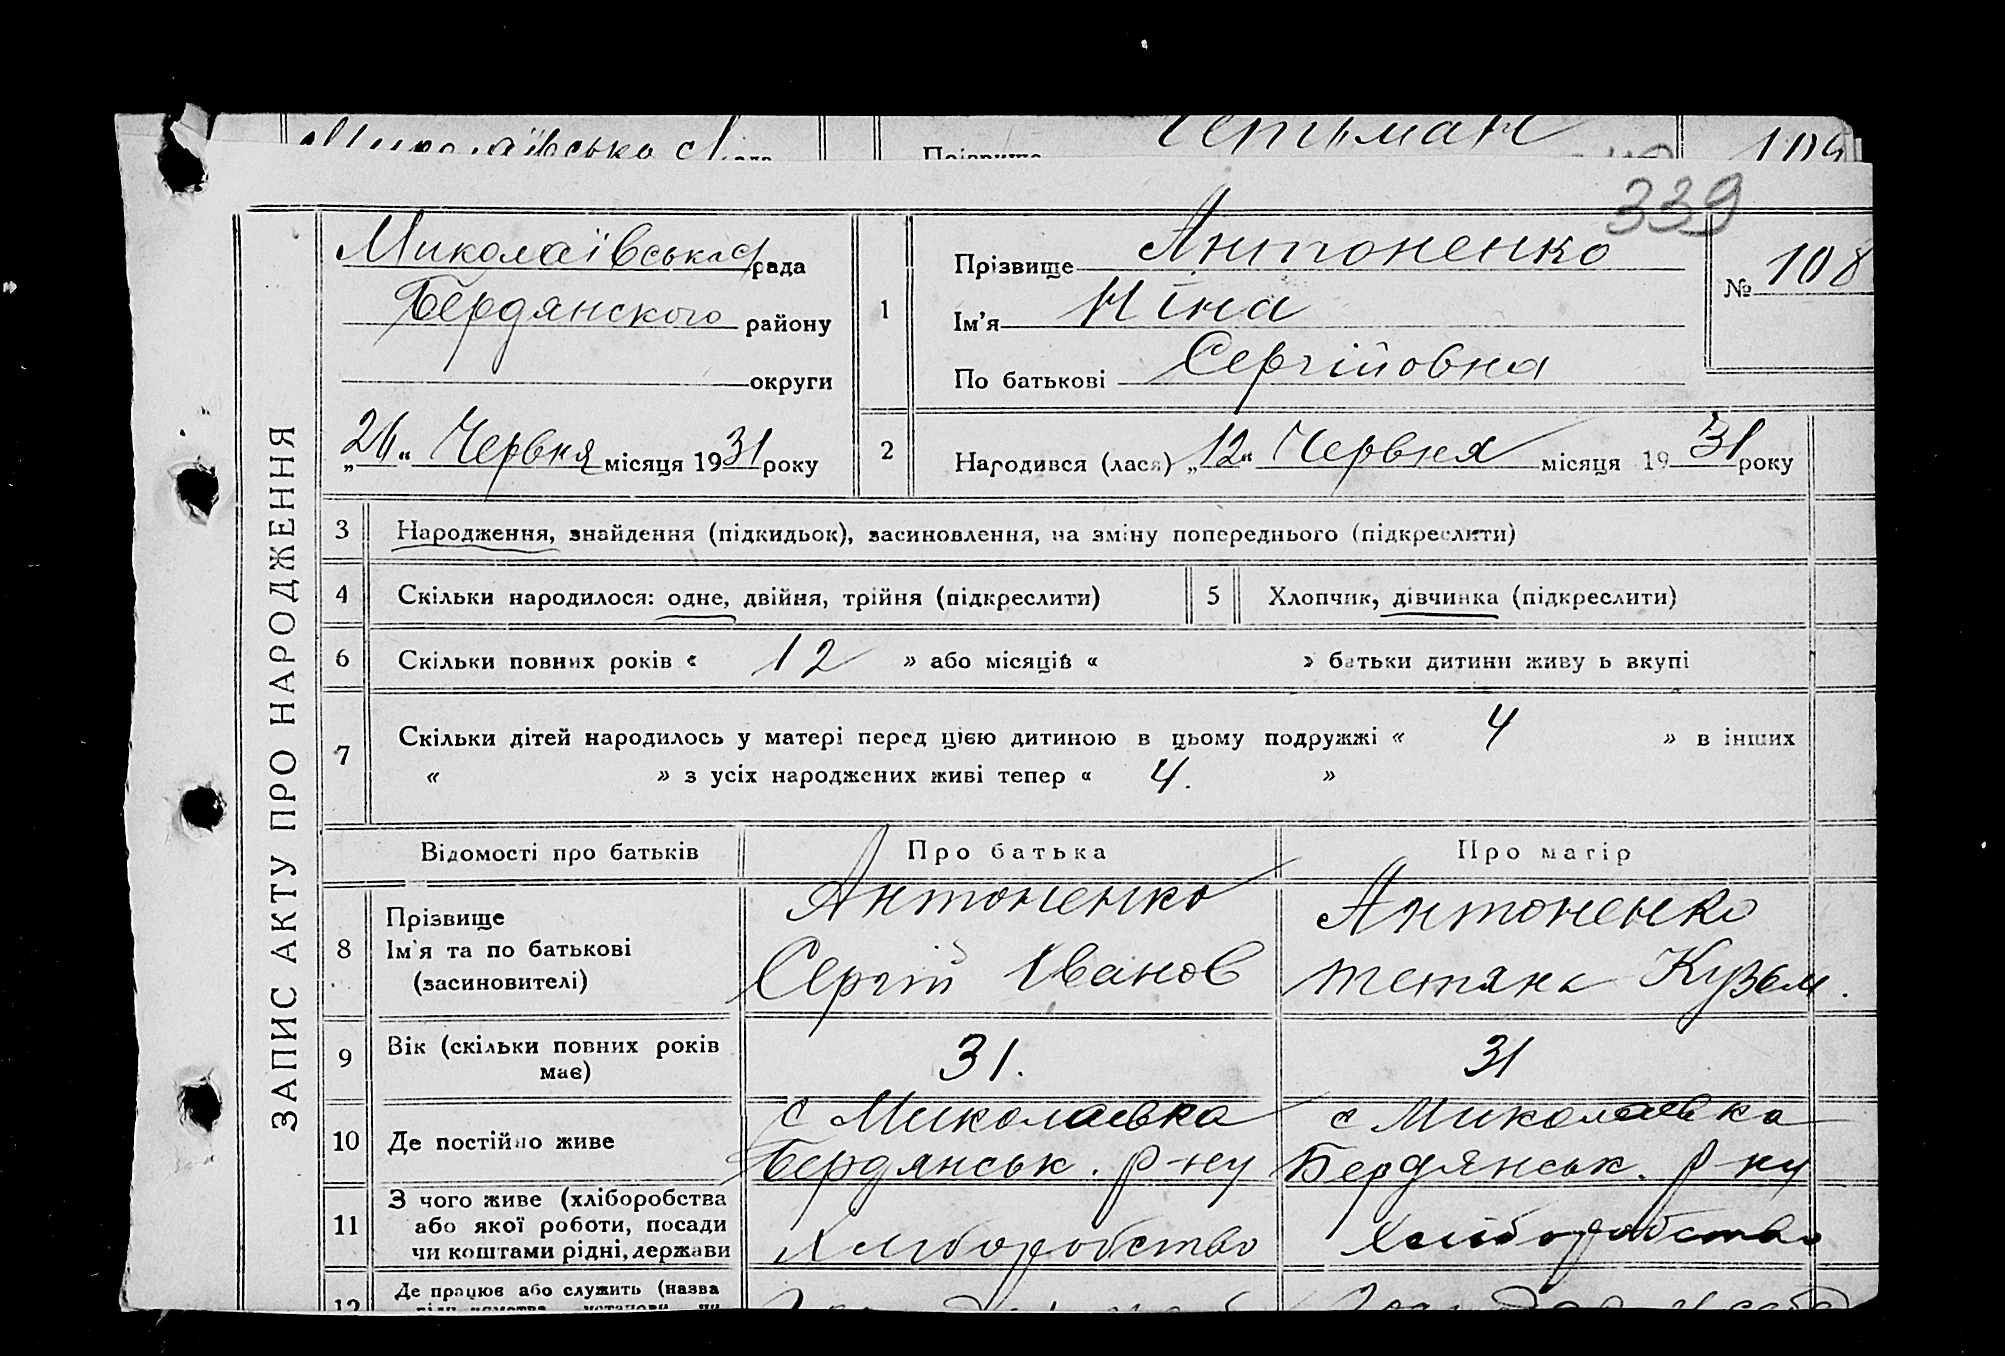 Миколаївська с/рада
Прізвище
Гетьман
109
339
ЗАПИС АКТУ ПРО НАРОДЖЕННЯ
Миколаївська с/рада
Бердянского району
округи
„26“ Червня місяця 1931 року
1
Прізвище Антоненко
Ім’я Ніна
По батькові Сергійовна
№ 108
2
Народився (лася) „12“ Червня місяця 1931 року
3 Народження, знайдення (підкидьок), засиновлення, на зміну попереднього (підкреслити)
4 Скільки народилося: одне, двійня, трійня (підкреслити)
5 Хлопчик, дівчинка (підкреслити)
6 Скільки повних років « 12 » або місяців « » батьки дитини живу ь вкупі
7 Скільки дітей народилось у матері перед цією дитиною в цьому подружжі « 4 » в інших
« » з усіх народжених живі тепер « 4. »
Відомості про батьків Про батька Про матір
8 Прізвище
Ім’я та по батькові
(засиновителі)
Антоненко
Сергій Іванов
Антоненко
Тетяна Кузьм.
9 Вік (скільки повних років
має)
31.
31
10 Де постійно живе
с Миколаевка
Бердянськ. р-ну
с Миколаевка
Бердянськ. р-ну
11 З чого живе (хліборобства
або якої роботи, посади
чи коштами рідні, держави
Хліборобство
Хліборобство
12 Де працює або служить (назва